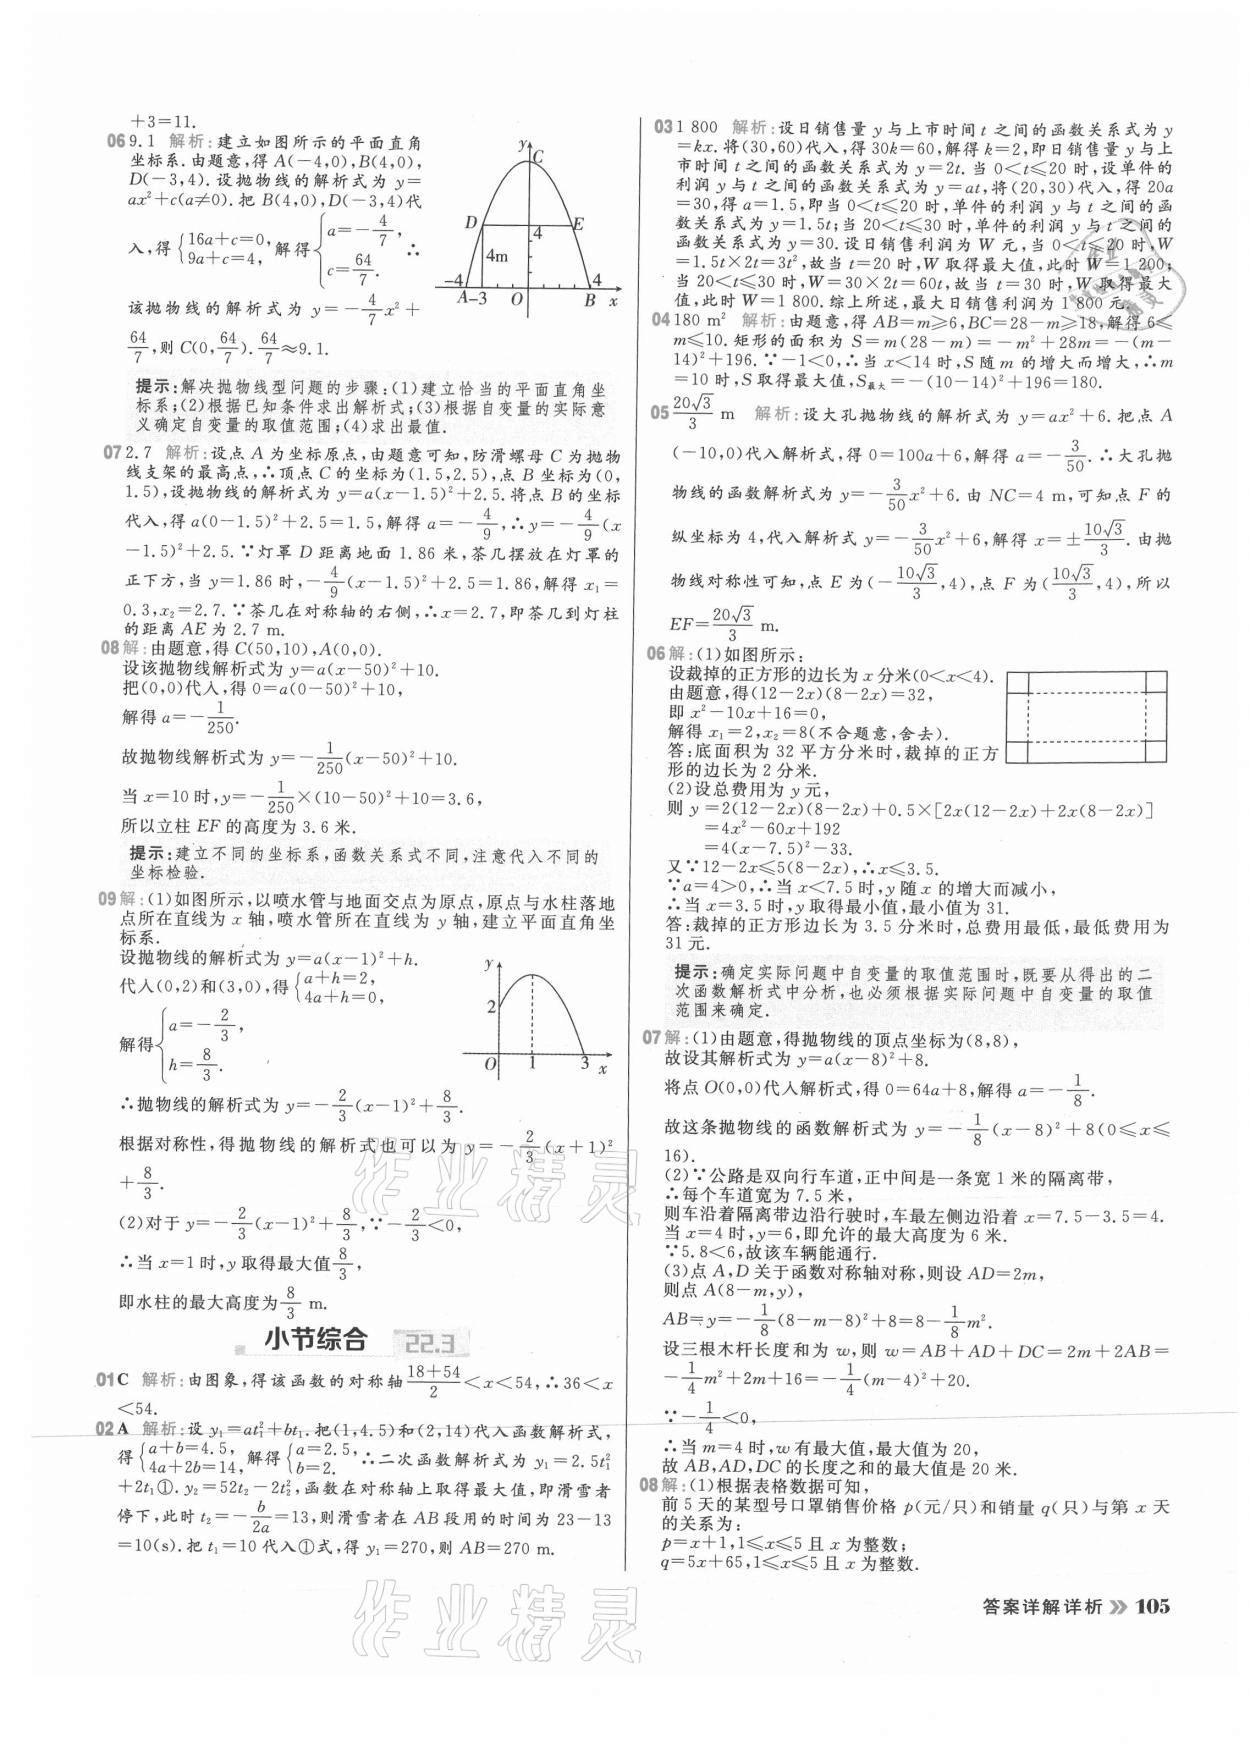 +3=11.
06 9.1 解析:建立如图所示的平面直角
坐标系.由题意,得 A(-4,0),B(4,0),
D(-3,4).设抛物线的解析式为 y=
ax²+c(a≠0).把 B(4,0),D(-3,4)代
入,得{16a+c=0, 9a+c=4, 解得{a=-4/7, c=64/7. ∴
该抛物线的解析式为 y=-4/7x²+
64/7,则 C(0,64/7).64/7≈9.1.
y C D E 4 4m -4 4 A -3 O B x
提示:解决抛物线型问题的步骤:(1)建立恰当的平面直角坐
标系;(2)根据已知条件求出解析式;(3)根据自变量的实际意
义确定自变量的取值范围;(4)求出最值.
07 2.7 解析:设点 A 为坐标原点,由题意可知,防滑螺母 C 为抛物
线支架的最高点,∴顶点 C 的坐标为(1.5,2.5),点 B 坐标为(0,
1.5),设抛物线的解析式为 y=a(x-1.5)²+2.5.将点 B 的坐标
代入,得 a(0-1.5)²+2.5=1.5,解得 a=-4/9,∴y=-4/9(x
-1.5)²+2.5.∵灯罩 D 距离地面 1.86 米,茶几摆放在灯罩的
正下方,当 y=1.86 时,-4/9(x-1.5)²+2.5=1.86,解得 x₁=
0.3,x₂=2.7.∵茶几在对称轴的右侧,∴x=2.7,即茶几到灯柱
的距离 AE 为 2.7 m.
08 解:由题意,得 C(50,10),A(0,0).
设该抛物线解析式为 y=a(x-50)²+10.
把(0,0)代入,得 0=a(0-50)²+10,
解得 a=-1/250.
故抛物线解析式为 y=-1/250(x-50)²+10.
当 x=10 时,y=-1/250×(10-50)²+10=3.6,
所以立柱 EF 的高度为 3.6 米.
提示:建立不同的坐标系,函数关系式不同,注意代入不同的
坐标检验.
09 解:(1)如图所示,以喷水管与地面交点为原点,原点与水柱落地
点所在直线为 x 轴,喷水管所在直线为 y 轴,建立平面直角坐
标系.
设抛物线的解析式为 y=a(x-1)²+h.
代入(0,2)和(3,0),得{a+h=2, 4a+h=0,
解得{a=-2/3, h=8/3.
y 2 O 1 3 x
∴抛物线的解析式为 y=-2/3(x-1)²+8/3.
根据对称性,得抛物线的解析式也可以为 y=-2/3(x+1)²
+8/3.
(2)对于 y=-2/3(x-1)²+8/3,∵-2/3<0,
∴当 x=1 时,y 取得最大值8/3,
即水柱的最大高度为8/3 m.
小节综合 22.3
01 C 解析:由图象,得该函数的对称轴(18+54)/2<x<54,∴36<x
<54.
02 A 解析:设 y₁=at₁²+bt₁.把(1,4.5)和(2,14)代入函数解析式,
得{a+b=4.5, 4a+2b=14, 解得{a=2.5, b=2. ∴二次函数解析式为 y₁=2.5t₁²
+2t₁①.y₂=52t₂-2t₂²,函数在对称轴上取得最大值,即滑雪者
停下,此时 t₂=-b/2a=13,则滑雪者在 AB 段用的时间为 23-13
=10(s).把 t₁=10 代入①式,得 y₁=270,则 AB=270 m.
03 1 800 解析:设日销售量 y 与上市时间 t 之间的函数关系式为 y
=kx.将(30,60)代入,得 30k=60,解得 k=2,即日销售量 y 与上
市时间 t 之间的函数关系式为 y=2t.当 0<t≤20 时,设单件的
利润 y 与 t 之间的函数关系式为 y=at,将(20,30)代入,得 20a
=30,得 a=1.5,即当 0<t≤20 时,单件的利润 y 与 t 之间的函
数关系式为 y=1.5t;当 20<t≤30 时,单件的利润 y 与 t 之间的
函数关系式为 y=30.设日销售利润为 W 元,当 0<t≤20 时,W
=1.5t×2t=3t²,故当 t=20 时,W 取得最大值,此时 W=1 200;
当 20<t≤30 时,W=30×2t=60t,故当 t=30 时,W 取得最大
值,此时 W=1 800.综上所述,最大日销售利润为 1 800 元.
04 180 m² 解析:由题意,得 AB=m≥6,BC=28-m≥18,解得 6≤
m≤10.矩形的面积为 S=m(28-m)=-m²+28m=-(m-
14)²+196.∵-1<0,∴当 x<14 时,S 随 m 的增大而增大,∴m
=10 时,S 取得最大值,S最大=-(10-14)²+196=180.
05 20√3/3 m 解析:设大孔抛物线的解析式为 y=ax²+6.把点 A
(-10,0)代入解析式,得 0=100a+6,解得 a=-3/50.∴大孔抛
物线的函数解析式为 y=-3/50x²+6.由 NC=4 m,可知点 F 的
纵坐标为 4,代入解析式 y=-3/50x²+6,解得 x=±10√3/3.由抛
物线对称性可知,点 E 为(-10√3/3,4),点 F 为(10√3/3,4),所以
EF=20√3/3 m.
06 解:(1)如图所示:
设裁掉的正方形的边长为 x 分米(0<x<4).
由题意,得(12-2x)(8-2x)=32,
即 x²-10x+16=0,
解得 x₁=2,x₂=8(不合题意,舍去).
答:底面积为 32 平方分米时,裁掉的正方
形的边长为 2 分米.
(2)设总费用为 y 元,
则 y=2(12-2x)(8-2x)+0.5×[2x(12-2x)+2x(8-2x)]
=4x²-60x+192
=4(x-7.5)²-33.
又∵12-2x≤5(8-2x),∴x≤3.5.
∵a=4>0,∴当 x<7.5 时,y 随 x 的增大而减小,
∴当 x=3.5 时,y 取得最小值,最小值为 31.
答:裁掉的正方形边长为 3.5 分米时,总费用最低,最低费用为
31 元.
提示:确定实际问题中自变量的取值范围时,既要从得出的二
次函数解析式中分析,也必须根据实际问题中自变量的取值
范围来确定.
07 解:(1)由题意,得抛物线的顶点坐标为(8,8),
故设其解析式为 y=a(x-8)²+8.
将点 O(0,0)代入解析式,得 0=64a+8,解得 a=-1/8.
故这条抛物线的函数解析式为 y=-1/8(x-8)²+8(0≤x≤
16).
(2)∵公路是双向行车道,正中间是一条宽 1 米的隔离带,
∴每个车道宽为 7.5 米,
则车沿着隔离带边沿行驶时,车最左侧边沿着 x=7.5-3.5=4.
当 x=4 时,y=6,即允许的最大高度为 6 米.
∵5.8<6,故该车辆能通行.
(3)点 A,D 关于函数对称轴对称,则设 AD=2m,
则点 A(8-m,y),
AB=y=-1/8(8-m-8)²+8=8-1/8m².
设三根木杆长度和为 w,则 w=AB+AD+DC=2m+2AB=
-1/4m²+2m+16=-1/4(m-4)²+20.
∵-1/4<0,
∴当 m=4 时,w 有最大值,最大值为 20,
故 AB,AD,DC 的长度之和的最大值是 20 米.
08 解:(1)根据表格数据可知,
前 5 天的某型号口罩销售价格 p(元/只)和销量 q(只)与第 x 天
的关系为:
p=x+1,1≤x≤5 且 x 为整数;
q=5x+65,1≤x≤5 且 x 为整数.
答案详解详析 105
作业精灵
作业精灵